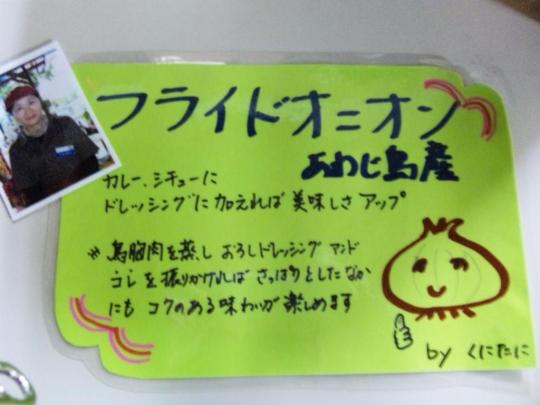 フライドオニオン
あわじ島産
カレー、シチューに
ドレッシングに加えれば美味しさアップ
※ 鳥胸肉を蒸し おろしドレッシング アンド
コレを振りかければ さっぱりとしたなか
にも コクのある味わいが楽しめます
by くにたに